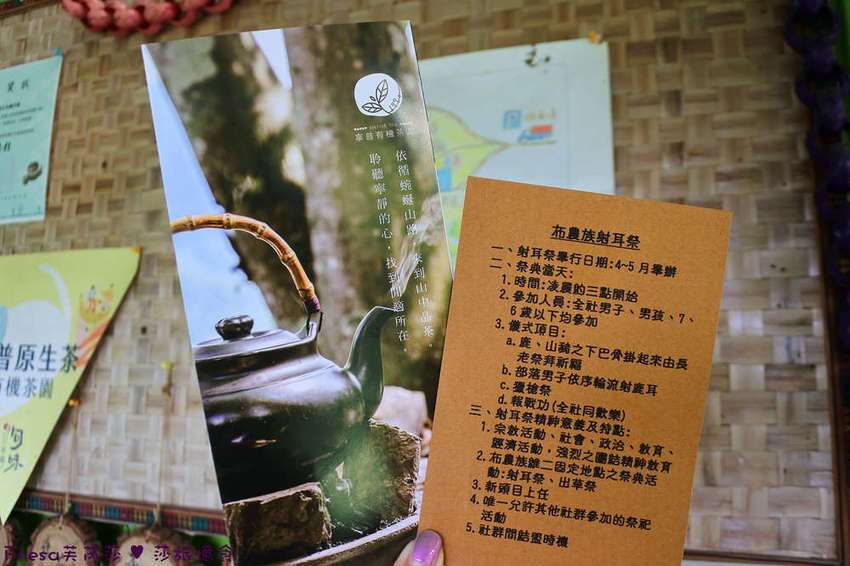 賞狀
普原生茶
有機茶園
寧普有機茶園
依循蜿蜒山路，來到山中品茶。
聆聽寧靜的心，找到閒適所在。
布農族射耳祭
一、射耳祭舉行日期:4~5月舉辦
二、祭典當天:
1.時間:凌晨約三點開始
2.參加人員:全社男子、男孩、7、
6歲以下均參加
3.儀式項目:
a.鹿、山豬之下巴骨掛起來由長
老祭拜祈福
b.部落男子依序輪流射鹿耳
c.獵槍祭
d.報戰功(全社同歡樂)
三、射耳祭精神意義及特點:
1.宗教活動、社會、政治、教育、
經濟活動,強烈之團結精神教育
2.布農族唯二固定地點之祭典活
動:射耳祭、出草祭
3.新頭目上任
4.唯一允許其他社群參加的祭祀
活動
5.社群間結盟時機